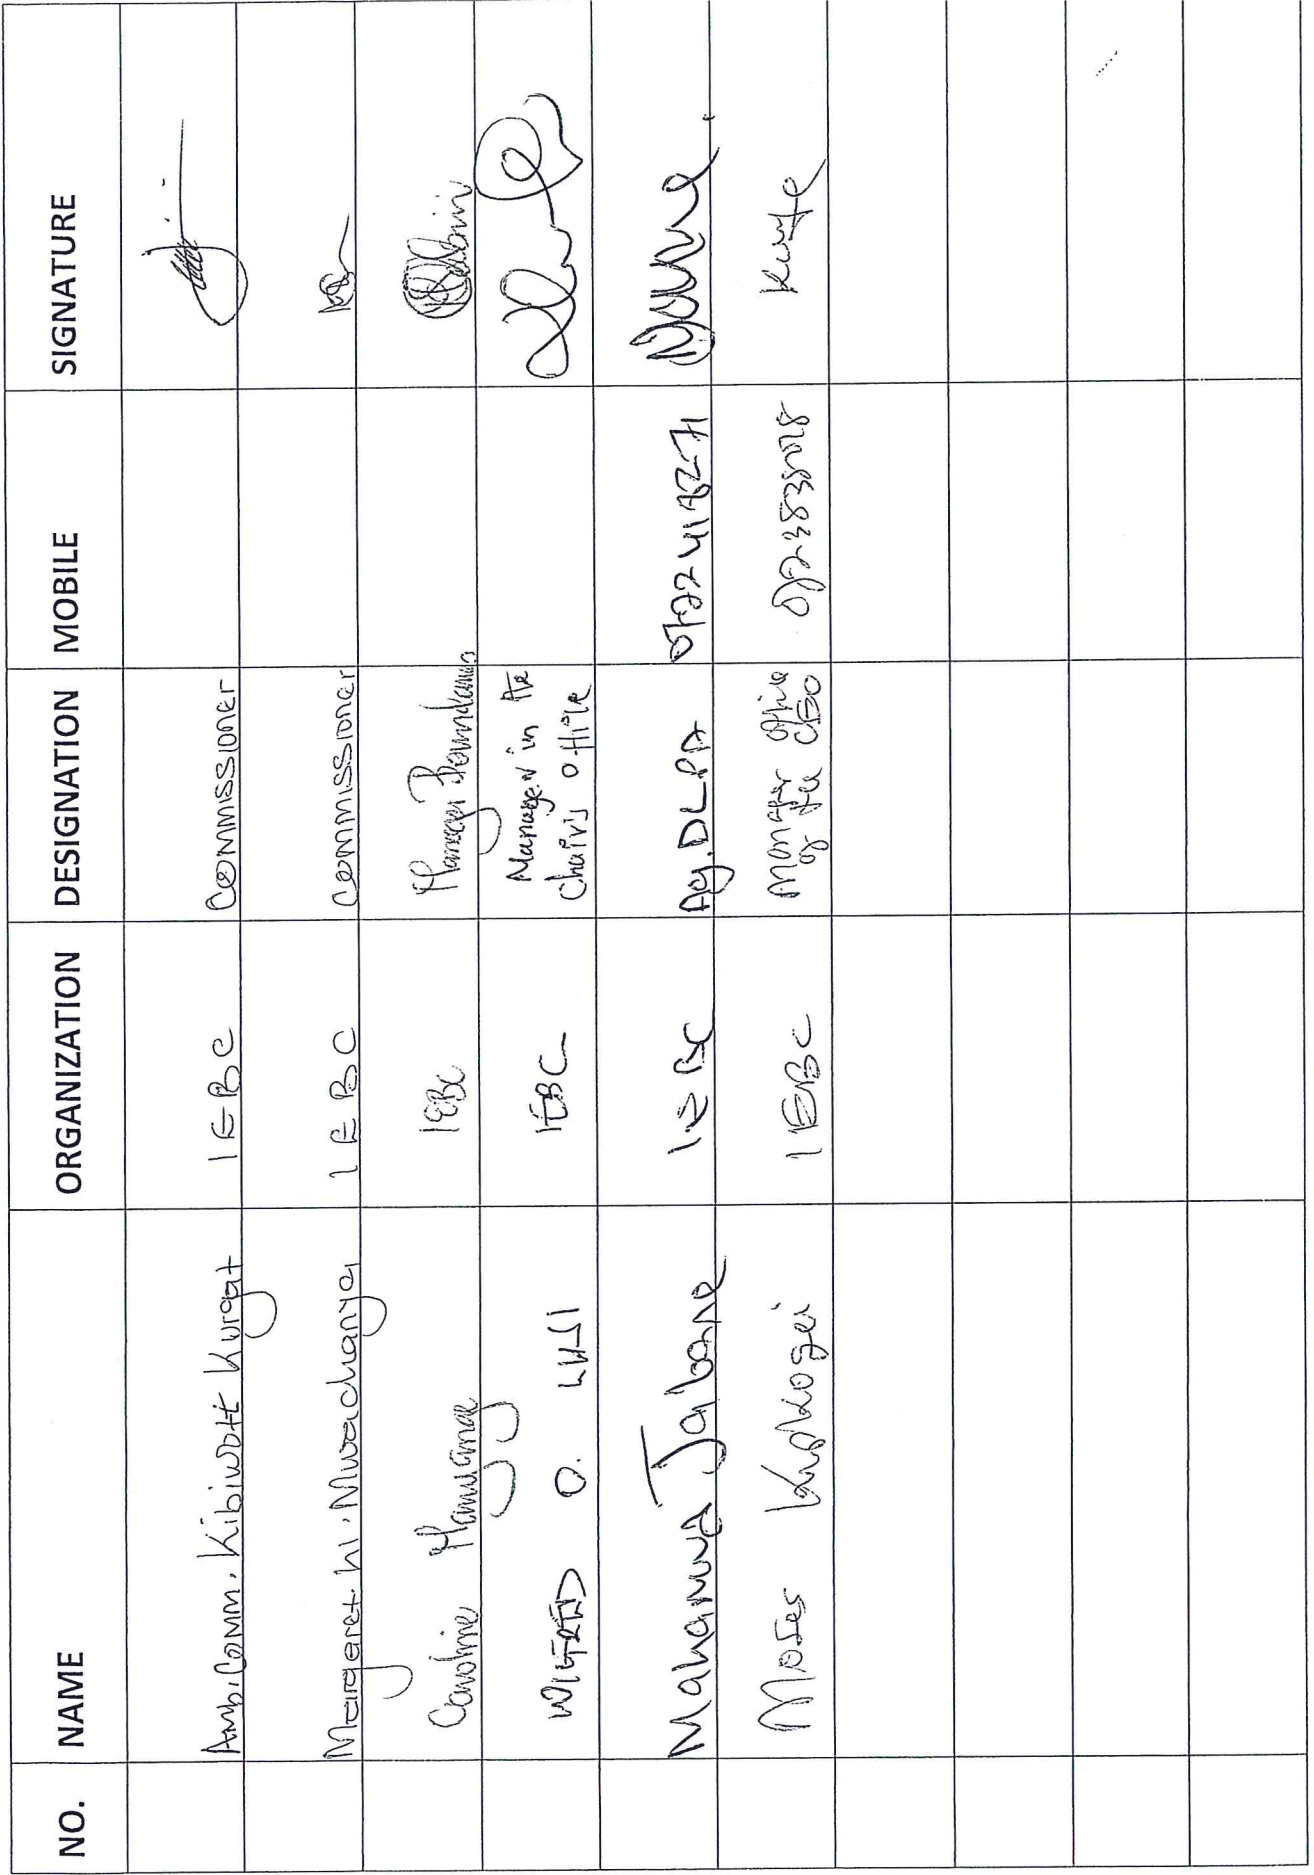 NO. NAME ORGANIZATION DESIGNATION MOBILE SIGNATURE
Amb. Comm. Kibiwott Kurgat IEBC Commissioner
Margaret W. Mwachanya IEBC Commissioner
Caroline Manyange IEBC Manager Boundaries
WILFRED O. IEBC Manager in the
Chair's office
Mahamud Jabane IEBC Ag. DLPA
Moses Kipkogei IEBC Manager office
of the CEO